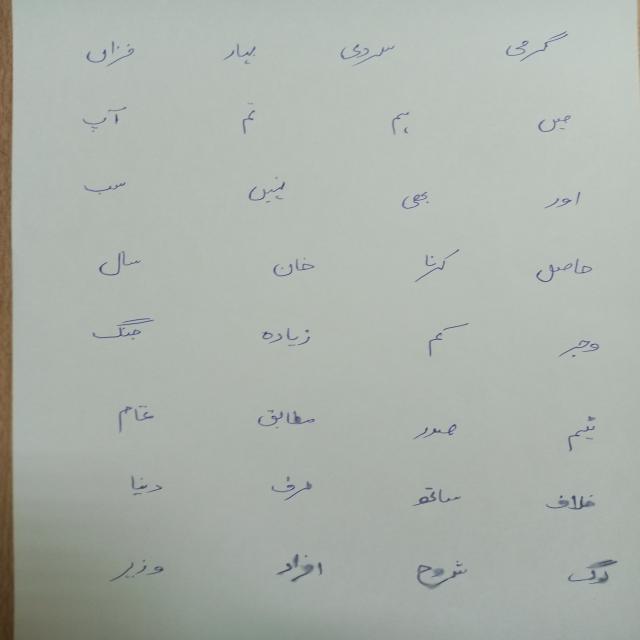 گرمی سردی بہار خزاں
میں ہم تم آپ
اور بھی نہیں سب
حاصل کرنا خان سال
وجہ کم زیادہ جنگ
ٹیم صدر مطابق عام
خلاف ساتھ طرف دنیا
لوگ شروع افراد وزیر